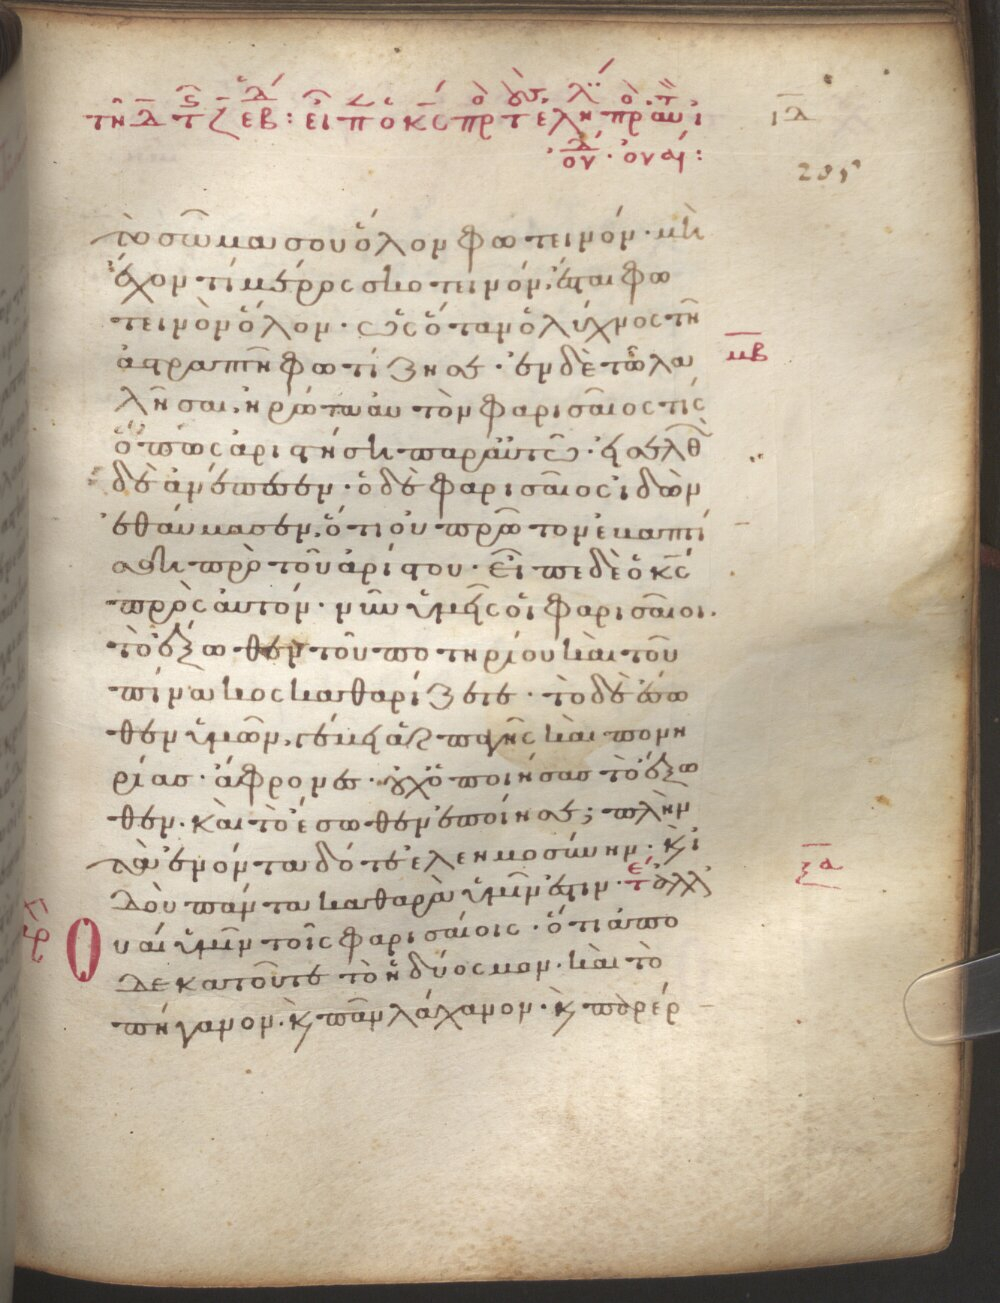 ιδ
205
τὸ σῶμα σου ὅλον φωτεινόν· μὴ
ἔχον τί μέρος σκοτεινόν, ἔσται φω
τεινὸν ὅλον· ὡς ὅταν ὁ λύχνος τῇ
ἀστραπῇ φωτίζη σε· ἐν δὲ τῶ λα
μβ
λῆσαι, ἠρώτα αὐτὸν φαρισαῖος τίς
ὅπως ἀριστήσῃ παρ' αὐτῶ· εἰσελθ
δὲ ἀνέπεσεν· ὁ δὲ φαρισαῖος ἰδὼν
ἐθαύμασεν, ὅτι οὐ πρῶτον ἐβαπτί
σθη πρὸ τοῦ ἀρίστου· εἶπε δὲ ὁ κς
πρὸς αὐτόν· νῦν ὑμεῖς οἱ φαρισαῖοι·
τὸ ἔξωθεν τοῦ ποτηρίου καὶ τοῦ
πίνακος καθαρίζετε· τὸ δὲ ἔσω
θεν ὑμῶν, γέμει ἁρπαγῆς καὶ πονη
ρίας· ἄφρονες· οὐχ ὁ ποιήσας τὸ ἔξω
θεν· καὶ τὸ ἔσωθεν ἐποίησε; πλὴν
τὰ ἐνόντα δότε ἐλεημοσύνην· κ ἰ
δοὺ πάντα καθαρὰ ὑμῖν ἐστιν·
ξα
Ουαὶ ὑμῖν τοῖς φαρισαίοις· ὅτι ἀπο
δεκατοῦτε τὸ ἡδύοσμον· καὶ τὸ
πήγανον· κ πᾶν λάχανον· κ παρέρ